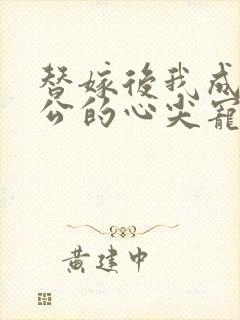 替嫁後我成
公的心尖寵
黃建中